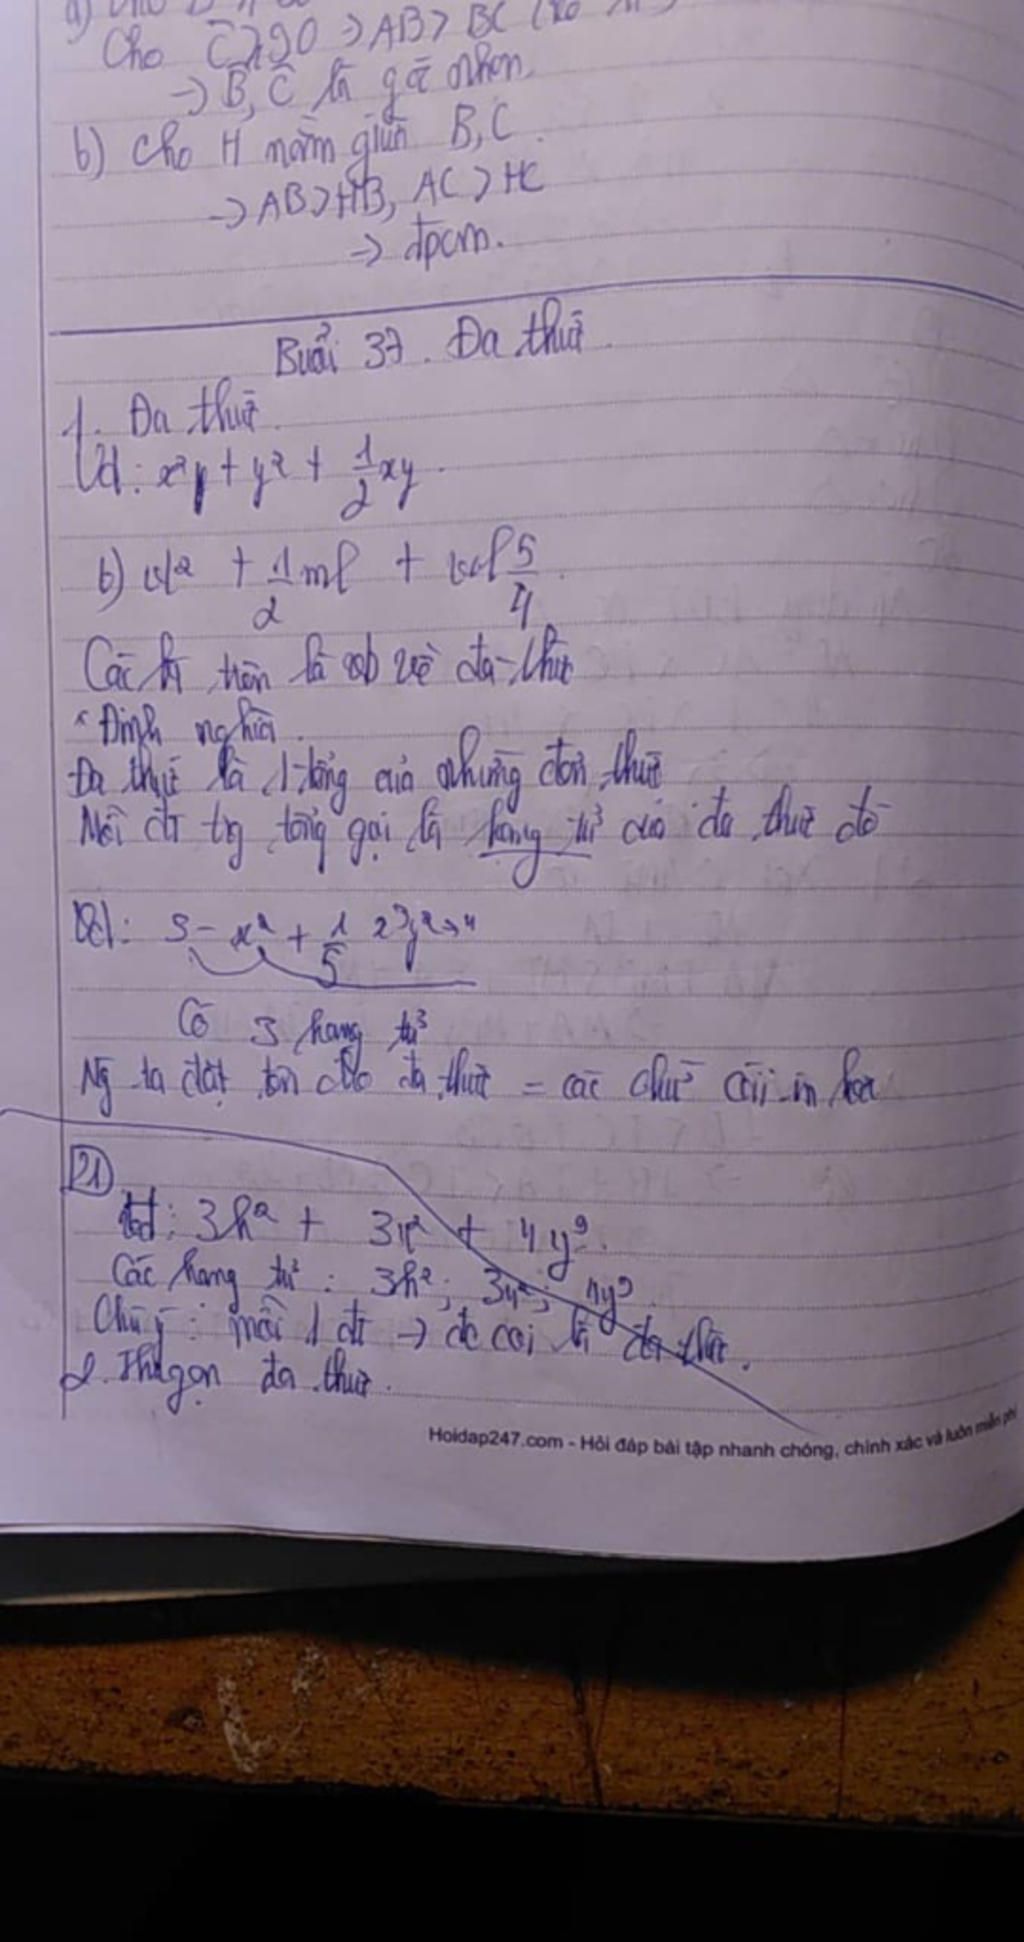 Cho C ≥ 90 → AB > BC
→ B, C là gó nhọn
b) Cho H nằm giữa B, C.
→ AB > HB, AC > HC
→ đpcm.
Buổi 37. Đa thức
1. Đa thức.
Vd: x²y + y² + 1/2 xy.
b) + 1/2 + 5/4
Các trên là vd về đa thức
* Định nghĩa.
Đa thức là 1 tổng của những đơn thức
Mỗi đt trg tổng gọi là hạng tử của đa thức đó
Vd: 3 - x² + 1/5
Có 3 hạng tử
Ng ta đặt tên cho đa thức = các chữ cái in hoa
?1
Vd: 3h² + + 4y⁹.
Các hạng tử: 3h²; 4y⁹
Chú ý: mỗi 1 đt → đc coi là đa thức.
2. Thu gọn đa thức.
Hoidap247.com - Hỏi đáp bài tập nhanh chóng, chính xác và luôn miễn phí